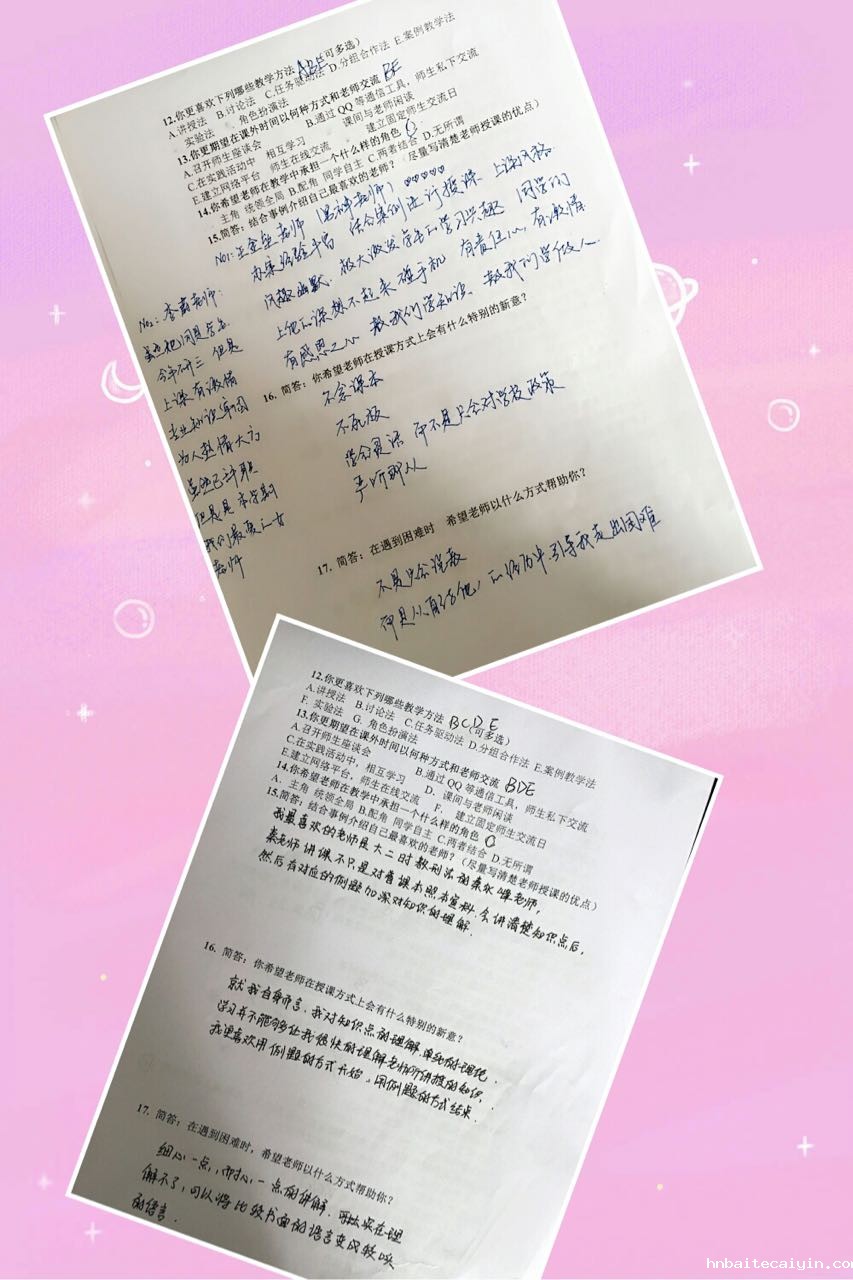 12.你更喜欢下列哪些教学方法 ABE(可多选)
A.讲授法 B.讨论法 C.任务驱动法 D.分组合作法 E.案例教学法
实验法 角色扮演法
13.你更期望在课外时间以何种方式和老师交流 BE
A.召开师生座谈会 B.通过QQ等通信工具，师生私下交流
C.在实践活动中 相互学习 课间与老师闲谈
E.建立网络平台 师生在线交流 建立固定师生交流日
14.你希望老师在教学中承担一个什么样的角色 C
主角 统领全局 B.配角 同学自主 C.两者结合 D.无所谓
15.简答：结合事例介绍自己最喜欢的老师？（尽量写清楚老师授课的优点）
No1: 老师（男神老师）♡♡♡♡♡
办案经验丰富 结合案例进行授课 上课风格
风趣幽默 极大激发学生的学习兴趣 同学们
上他的课想不起来碰手机 有责任心，有激情
有感恩之心 教我们学知识、教我们学做人.
No2: 李 老师:
今年研三 但是
上课有激情
专业知识牢固
为人热情大方
虽然已
但是是本学期
我们最爱之女
老师
16. 简答：你希望老师在授课方式上会有什么特别的新意？
不念课本
不死板
学会灵活 而不是只会对学校政策
严听那从
17. 简答：在遇到困难时 希望老师以什么方式帮助你？
不是只会说教
而是从自己(他)的经历中引导我走出困难
12.你更喜欢下列哪些教学方法 BCDE(可多选)
A.讲授法 B.讨论法 C.任务驱动法 D.分组合作法 E.案例教学法
F. 实验法 G. 角色扮演法
13.你更期望在课外时间以何种方式和老师交流 BDE
A.召开师生座谈会 B.通过QQ等通信工具，师生私下交流
C.在实践活动中，相互学习 D. 课间与老师闲谈
E.建立网络平台，师生在线交流 F. 建立固定师生交流日
14.你希望老师在教学中承担一个什么样的角色 C
A. 主角 统领全局 B.配角 同学自主 C.两者结合 D.无所谓
15.简答：结合事例介绍自己最喜欢的老师？（尽量写清楚老师授课的优点）
我最喜欢的老师是大二时教刑法的秦 峰老师，
秦老师讲课不只是对着课本照本宣科.会讲清楚知识点后，
然后有对应的例题加深对知识的理解.
16. 简答：你希望老师在授课方式上会有什么特别的新意？
就我自身而言，我对知识点的理解.单纯的理论
学习并不能够让我很快的理解老师所讲授的知识.
我更喜欢用例题的方式开始，用例题的方式结束.
17. 简答：在遇到困难时，希望老师以什么方式帮助你？
细心一点，耐心一点的讲解. 实在理
解不了，可以将比较书面的语言变成较
的语言.
hnbaitecaiyin.com